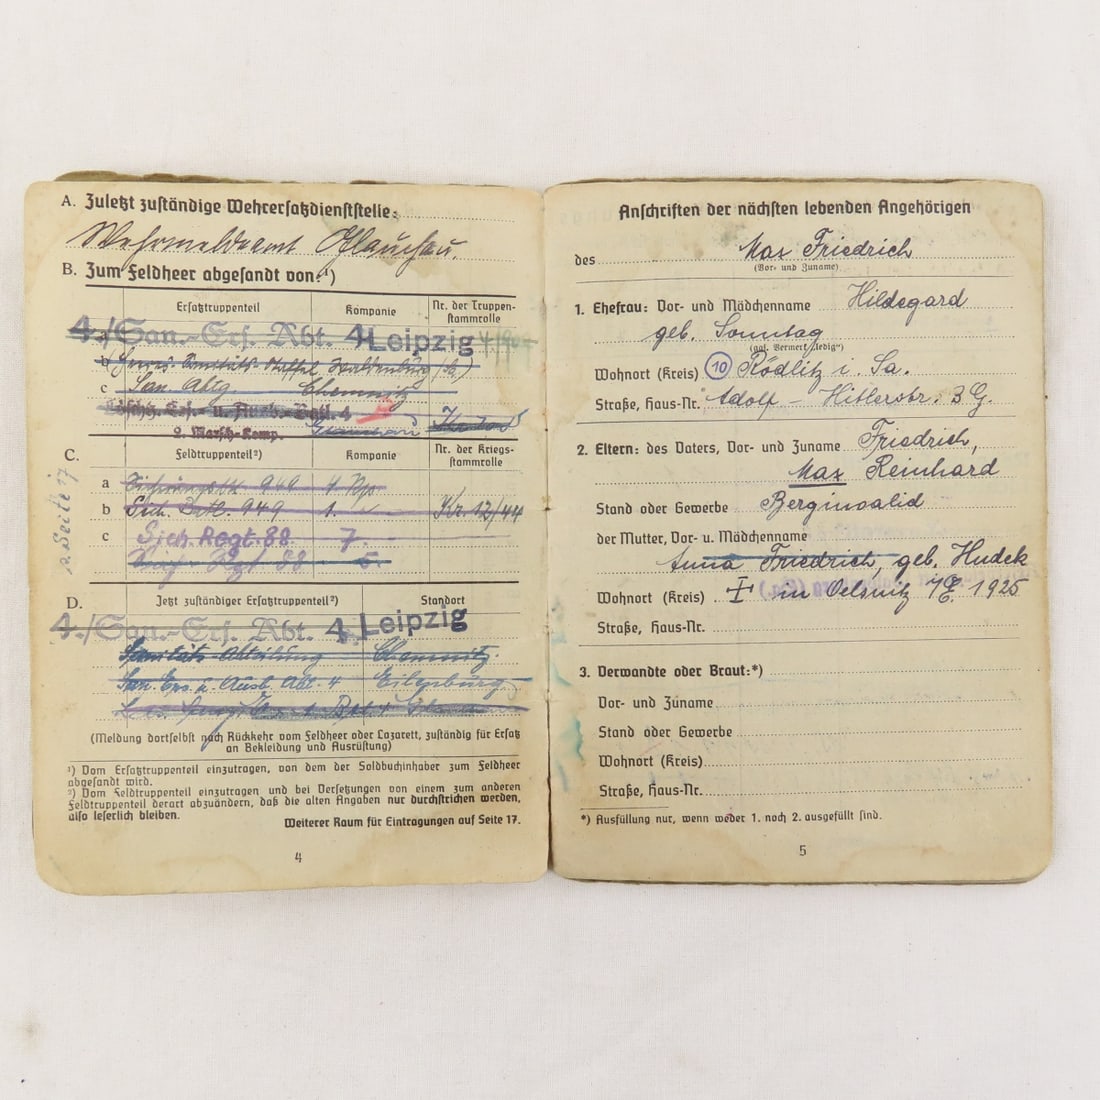 A. Zuletzt zuständige Wehrersatzdienststelle:
Wehrmeldeamt Glauchau.
B. Zum Feldheer abgesandt von:¹)
Ersatztruppenteil Kompanie Nr. der Truppenstammrolle
4./San.-Ers. Abt. 4 Leipzig
b Waldenburg (Sa.)
c San. Abtg Chemnitz
Ers.- u. Ausb.- Batl. 4
2. Marsch-Komp. Glauchau
C. Feldtruppenteil²) Kompanie Nr. der Kriegsstammrolle
a 949 1 Kp
b Sich. Batl. 949 1. Kr. 12/44
c Sich. Regt. 88. 7.
Rgt 88 5.
s. Seite 17
D. Jetzt zuständiger Ersatztruppenteil²) Standort
4./San.-Ers. Abt. 4 Leipzig
Sanitäts-Abteilung Chemnitz.
San. Ers. u. Ausb. Abt. 4 Eilenburg
(Meldung dortselbst nach Rückkehr vom Feldheer oder Lazarett, zuständig für Ersatz
an Bekleidung und Ausrüstung)
¹) Vom Ersatztruppenteil einzutragen, von dem der Soldbuchinhaber zum Feldheer
abgesandt wird.
²) Vom Feldtruppenteil einzutragen und bei Versetzungen von einem zum anderen
Feldtruppenteil derart abzuändern, daß die alten Angaben nur durchstrichen werden,
also leserlich bleiben.
Weiterer Raum für Eintragungen auf Seite 17.
4
Anschriften der nächsten lebenden Angehörigen
des Max Friedrich
(Vor- und Zuname)
1. Ehefrau: Vor- und Mädchenname Hildegard
geb. Sonntag
(ggf. Vermerk „ledig“)
Wohnort (Kreis) 10 Rödlitz i. Sa.
Straße, Haus-Nr. Adolf - Hitlerstr. 3 G.
2. Eltern: des Vaters, Vor- und Zuname Friedrich,
Max Reinhard
Stand oder Gewerbe Berginvalid
der Mutter, Vor- u. Mädchenname
Anna Friedrich, geb. Hudek
Wohnort (Kreis) in Oelsnitz 1925
Straße, Haus-Nr.
3. Verwandte oder Braut:*)
Vor- und Zuname
Stand oder Gewerbe
Wohnort (Kreis)
Straße, Haus-Nr.
*) Ausfüllung nur, wenn weder 1. noch 2. ausgefüllt sind.
5